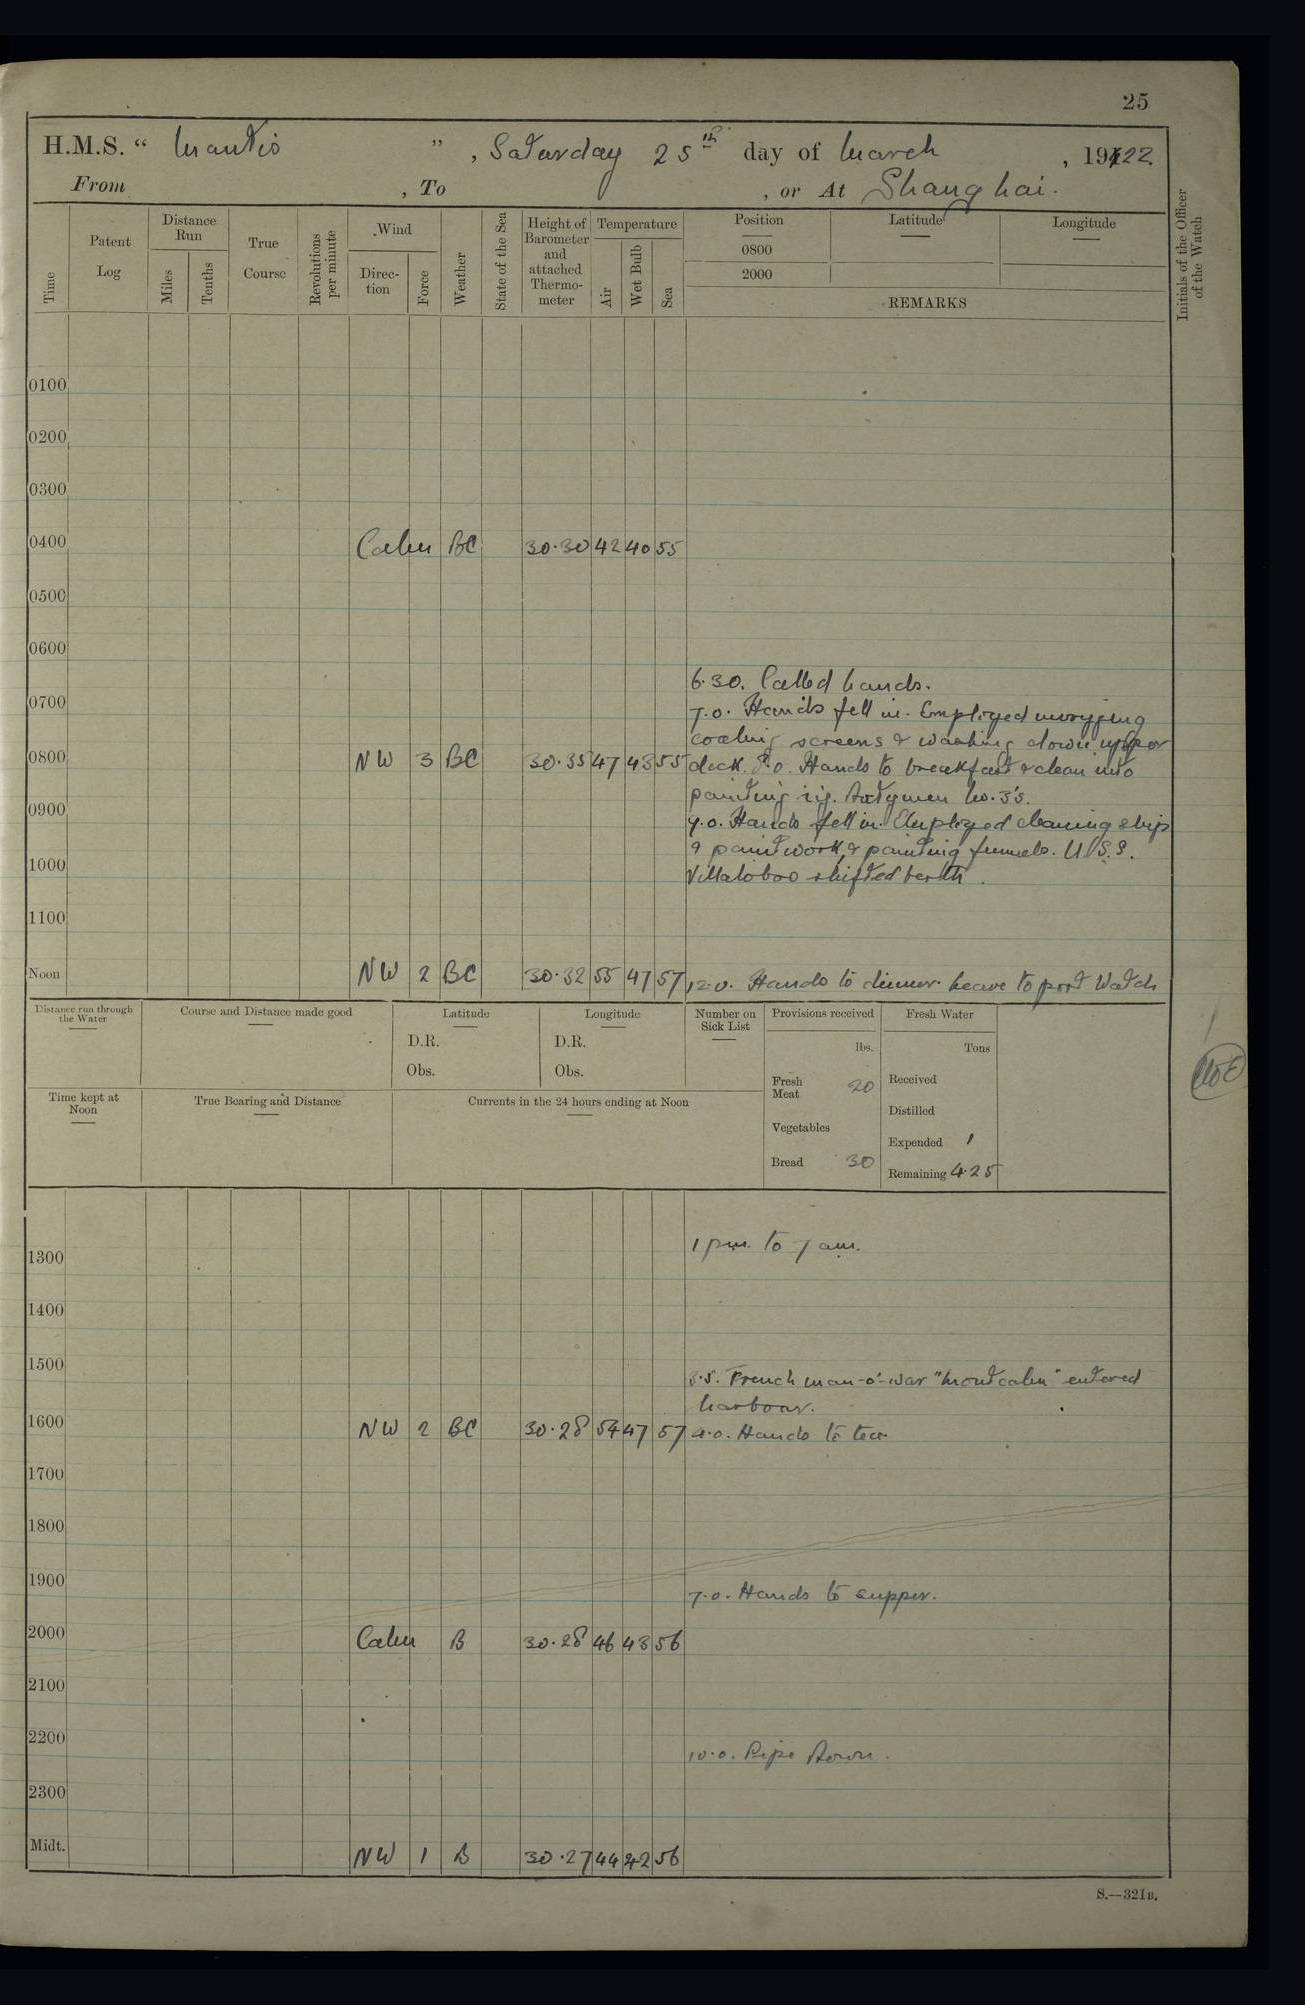 25
H.M.S. “ Mantis ”, Saturday 25th day of March, 1922.
From , To , or At Shanghai.
Time
Patent Log
Distance Run
Miles
Tenths
True Course
Revolutions per minute
Wind
Direc-tion
Force
Weather
State of the Sea
Height of Barometer and attached Thermo-meter
Temperature
Air
Wet Bulb
Sea
Position
0800
2000
Latitude
Longitude
REMARKS
Initials of the Officer of the Watch
0100
0200
0300
0400 Calm BC 30.30 42 40 55
0500
0600
6.30. Called hands.
0700
7.0. Hands fell in. Employed
coaling screens & washing down upper
0800 NW 3 BC 30.35 47 43 55 deck. 8.0. Hands to breakfast & clean into
painting rig. No. 3's.
0900
9.0. Hands fell in. Employed cleaning ship
& paintwork, & painting funnels. U.S.S.
1000
Villalobos shifted berth.
1100
Noon NW 2 BC 30.32 55 47 57 12.0. Hands to dinner. Leave to port Watch
Distance run through the Water
Course and Distance made good
Latitude
D.R.
Obs.
Longitude
D.R.
Obs.
Number on Sick List
Provisions received
lbs.
Fresh Meat 20
Vegetables
Bread 30
Fresh Water
Tons
Received
Distilled
Expended 1
Remaining 4.25
Time kept at Noon
True Bearing and Distance
Currents in the 24 hours ending at Noon
1 pm. to 7 am.
1300
1400
1500
French man-o'-war "Montcalm" entered
harbour.
1600 NW 2 BC 30.28 54 47 57 4.0. Hands to tea.
1700
1800
1900
7.0. Hands to supper.
2000 Calm B 30.28 46 43 56
2100
2200
10.0. Pipe Down.
2300
Midt. NW 1 B 30.27 44 42 56
S.—321B.